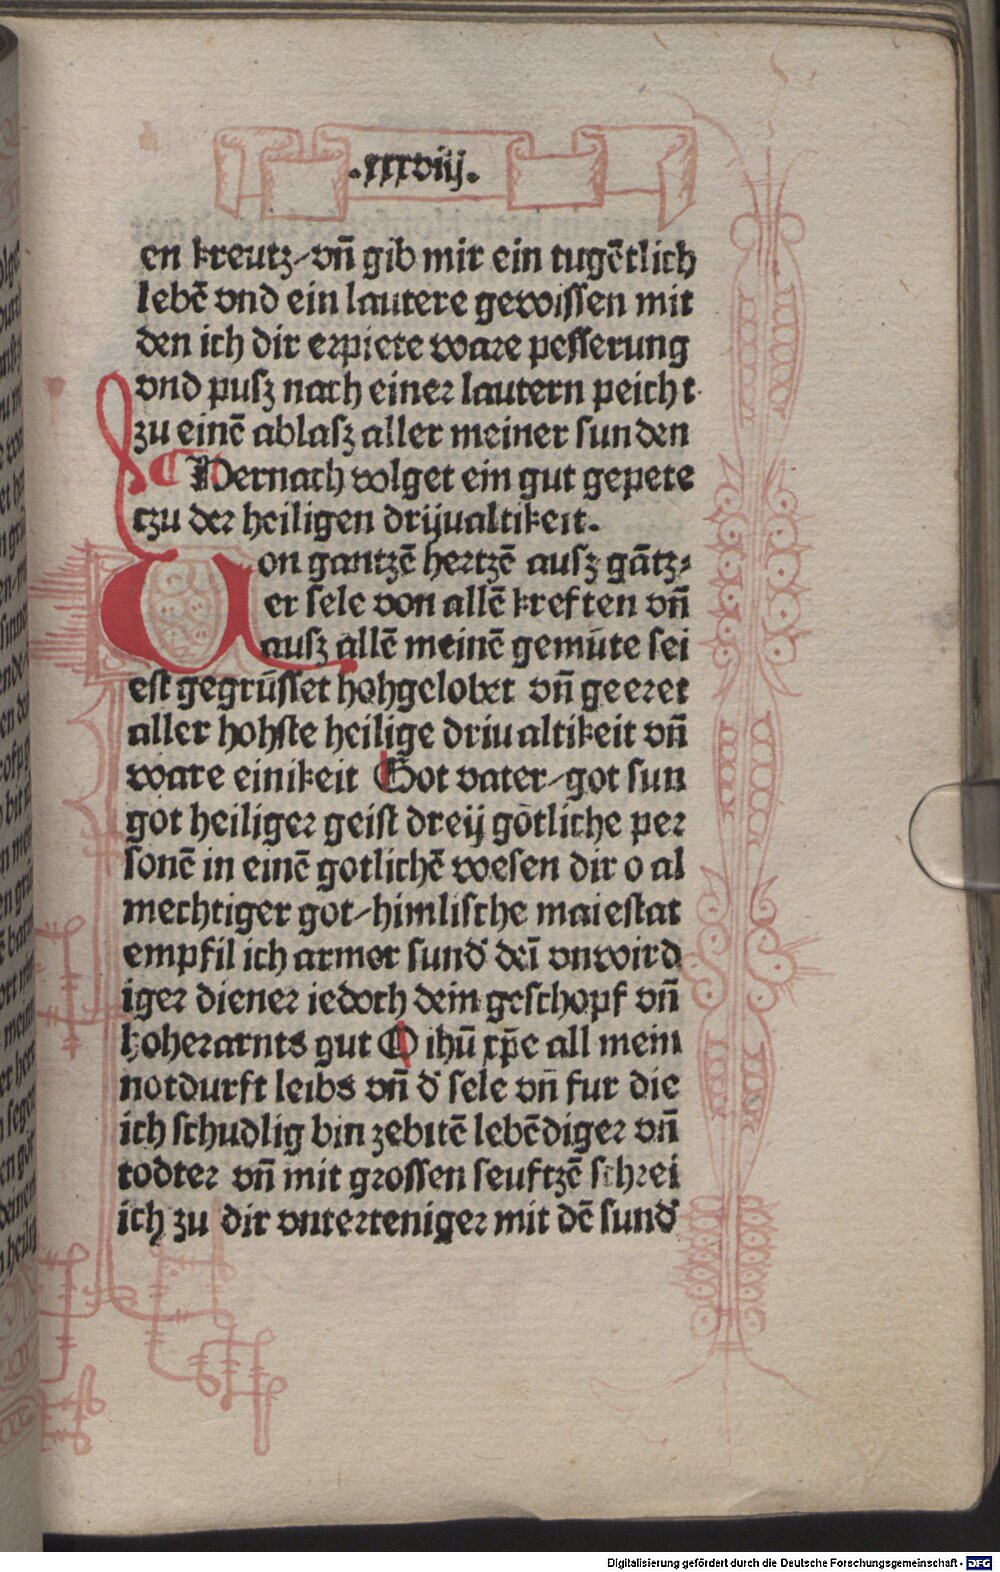 .xxxviij.
en kreutz-vn̄ gib mir ein tugētlich
lebē vnd ein lautere gewissen mit
den ich dir erpiete ware pesserung
vnd pusz nach einer lautern peicht
zu einē ablasz aller meiner sunden
¶ Hernach volget ein gut gepete
tzu der heiligen drijualtikeit.
Von gantzē hertzē ausz gātz-
er sele von allē kreften vn̄
ausz allē meinē gemute sei
est gegrūsset hohgelobet vn̄ geeret
aller hohste heilige driualtikeit vn̄
ware einikeit Got vater-got sun
got heiliger geist dreij gotliche per
sonē in einē gotlichē wesen dir o al
mechtiger got-himlische maiestat
empfil ich armer sund' dei̅ vnwird
iger diener iedoch dein geschopf vn̄
hoherarnts gut O ihū xp̄e all mein
notdurft leibs vn̄ d' sele vn̄ fur die
ich schudlig bin zebitē lebēdiger vn̄
todter vn̄ mit grossen seuftzē schrei
ich zu dir vnterteniger mit dē sund'
Digitalisierung gefördert durch die Deutsche Forschungsgemeinschaft - DFG